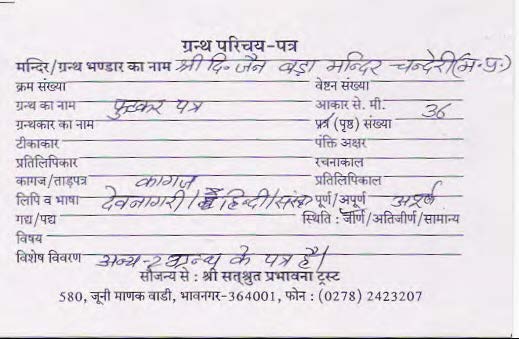 ग्रन्थ परिचय-पत्र
मन्दिर/ग्रन्थ भण्डार का नाम श्री दि. जैन बड़ा मन्दिर चन्देरी (म.प्र.)
क्रम संख्या वेष्टन संख्या
ग्रन्थ का नाम फुटकर पत्र आकार से. मी.
ग्रन्थकार का नाम पत्र (पृष्ठ) संख्या 36
टीकाकार पंक्ति अक्षर
प्रतिलिपिकार रचनाकाल
कागज/ताड़पत्र कागज प्रतिलिपिकाल
लिपि व भाषा देवनागरी/हिन्दी/संस्कृ पूर्ण/अपूर्ण अपूर्ण
गद्य/पद्य स्थिति : जीर्ण/अतिजीर्ण/सामान्य
विषय
विशेष विवरण अन्य-2 ग्रन्थ के पत्र है।
सौजन्य से : श्री सत्श्रुत प्रभावना ट्रस्ट
580, जूनी माणक वाडी, भावनगर-364001, फोन : (0278) 2423207